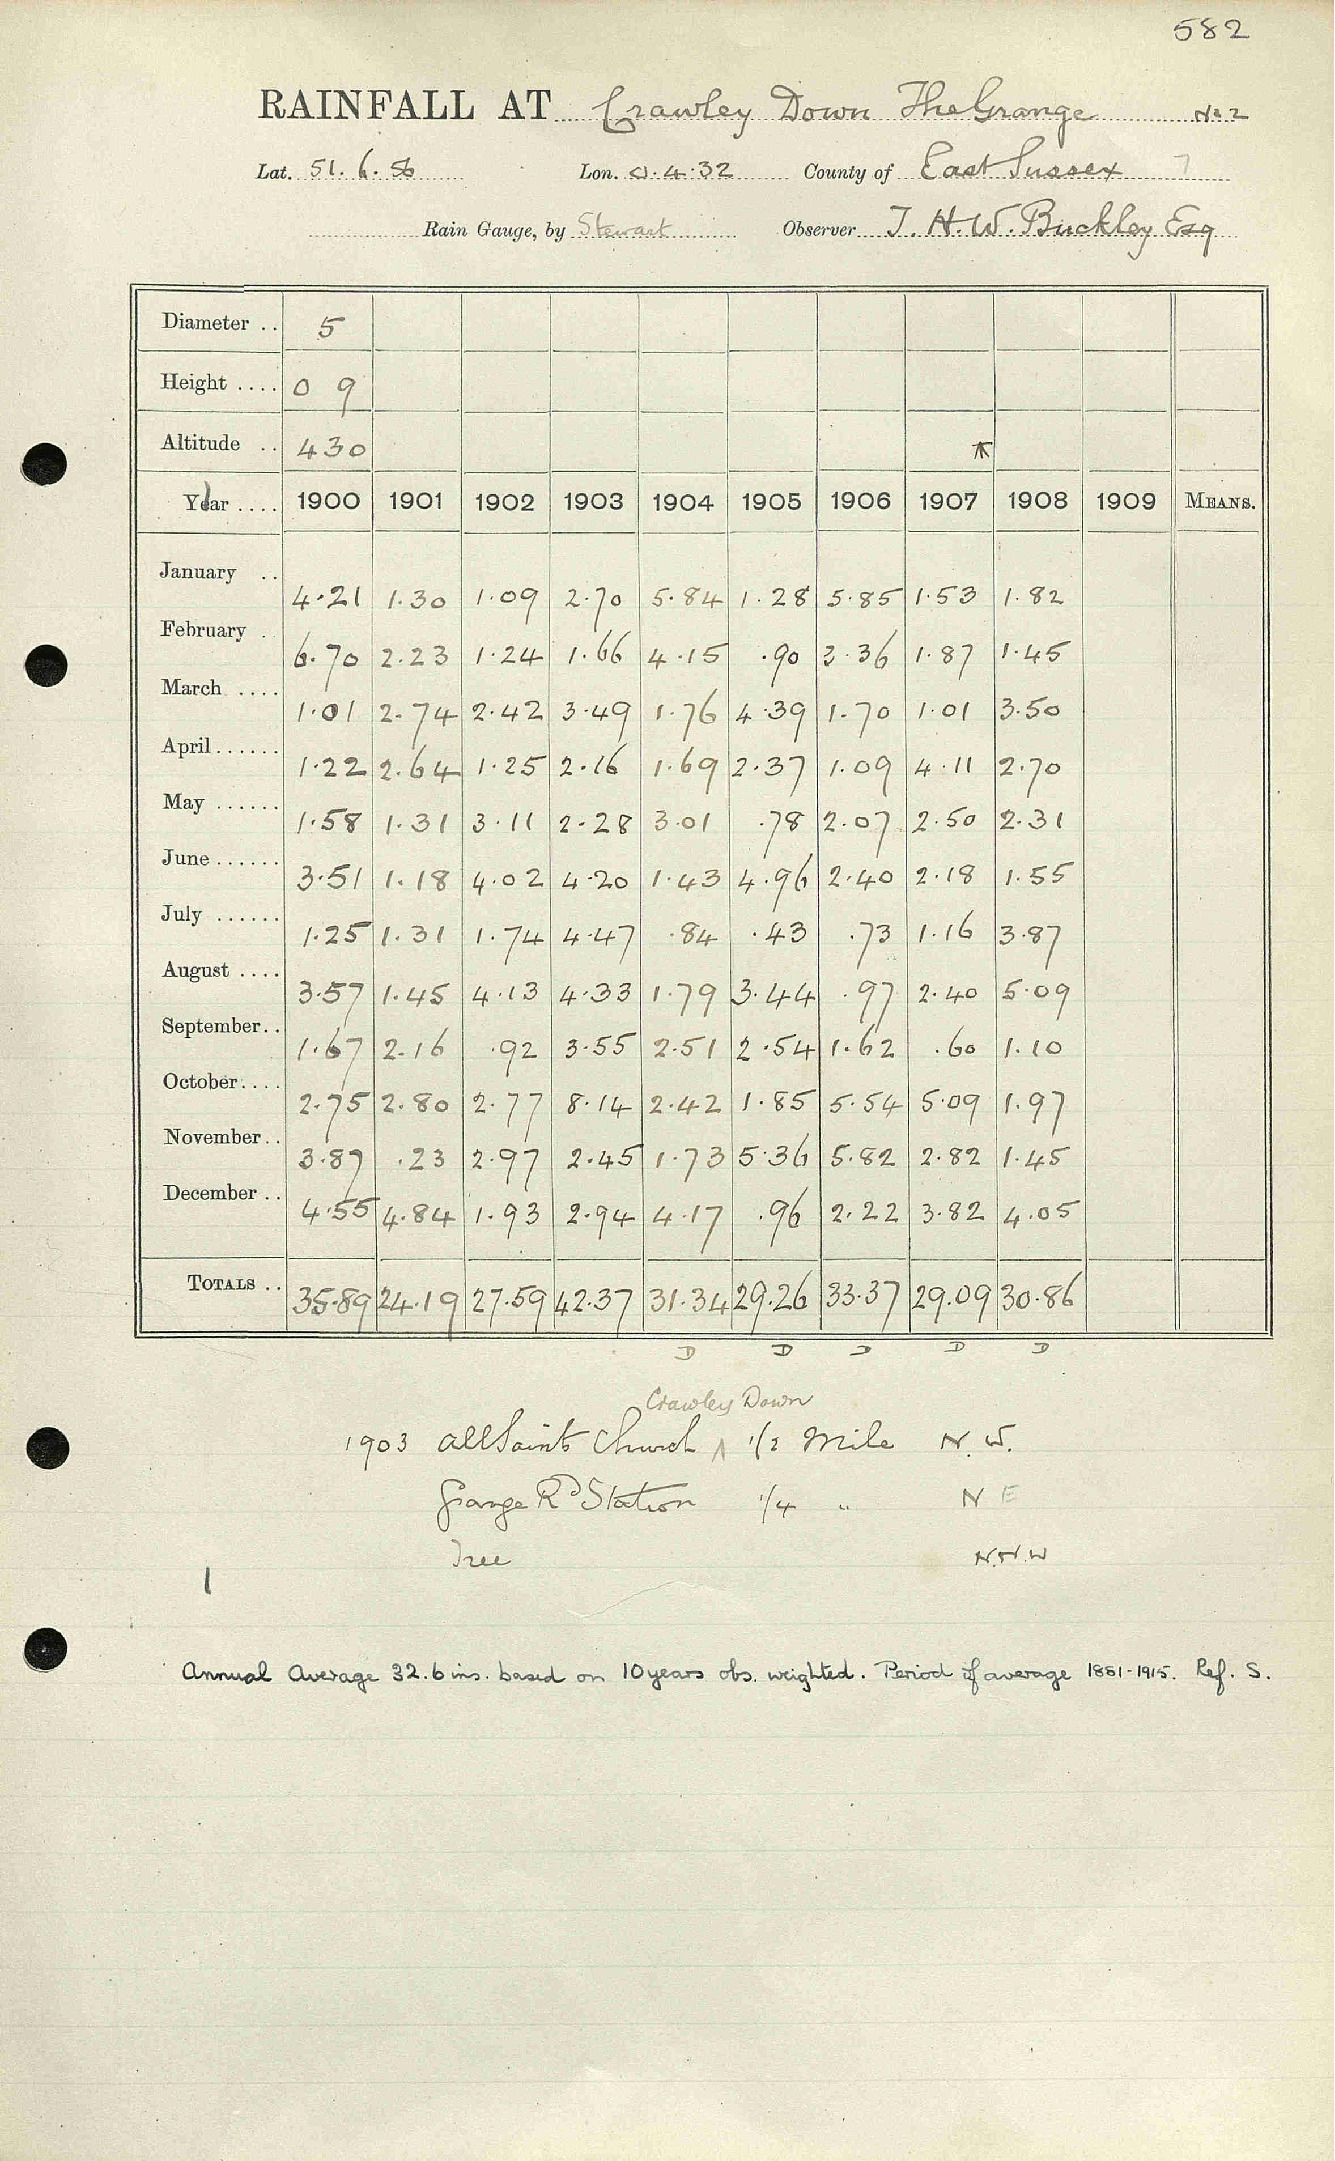 582
RAINFALL AT Crawley Down The Grange No 2
Lat. 51. 6. 56 Lon. 0. 4. 32 County of East Sussex 7
Rain Gauge, by Stewart Observer J. H. W. Buckley Esq
Diameter .. 5
Height .... 0 9
Altitude .. 430
Year .... 1900 1901 1902 1903 1904 1905 1906 1907 1908 1909 MEANS.
January .. 4.21 1.30 1.09 2.70 5.84 1.28 5.85 1.53 1.82
February . 6.70 2.23 1.24 1.66 4.15 .90 3.36 1.87 1.45
March .... 1.01 2.74 2.42 3.49 1.76 4.39 1.70 1.01 3.50
April ...... 1.22 2.64 1.25 2.16 1.69 2.37 1.09 4.11 2.70
May ...... 1.58 1.31 3.11 2.28 3.01 .78 2.07 2.50 2.31
June ...... 3.51 1.18 4.02 4.20 1.43 4.96 2.40 2.18 1.55
July ...... 1.25 1.31 1.74 4.47 .84 .43 .73 1.16 3.87
August .... 3.57 1.45 4.13 4.33 1.79 3.44 .97 2.40 5.09
September.. 1.67 2.16 .92 3.55 2.51 2.54 1.62 .60 1.10
October.... 2.75 2.80 2.77 8.14 2.42 1.85 5.54 5.09 1.97
November.. 3.87 .23 2.97 2.45 1.73 5.36 5.82 2.82 1.45
December .. 4.55 4.84 1.93 2.94 4.17 .96 2.22 3.82 4.05
TOTALS .. 35.89 24.19 27.59 42.37 31.34 29.26 33.37 29.09 30.86
D D D D D
Crawley Down
1903 All Saints Church ^ 1/2 Mile N. W.
Grange Rd Station 1/4 " N E
Tree N.N.W
Annual Average 32.6 ins. based on 10 years obs. weighted. Period of average 1881-1915. Ref. S.